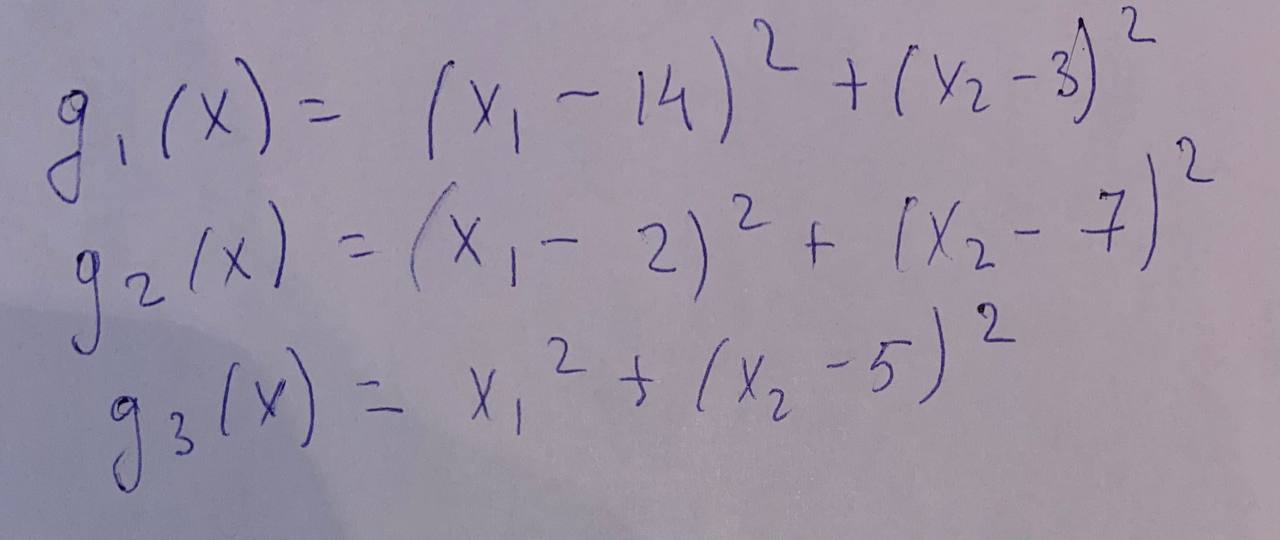 g₁(x) = (x₁ - 14)² + (x₂ - 3)²
g₂(x) = (x₁ - 2)² + (x₂ - 7)²
g₃(x) = x₁² + (x₂ - 5)²